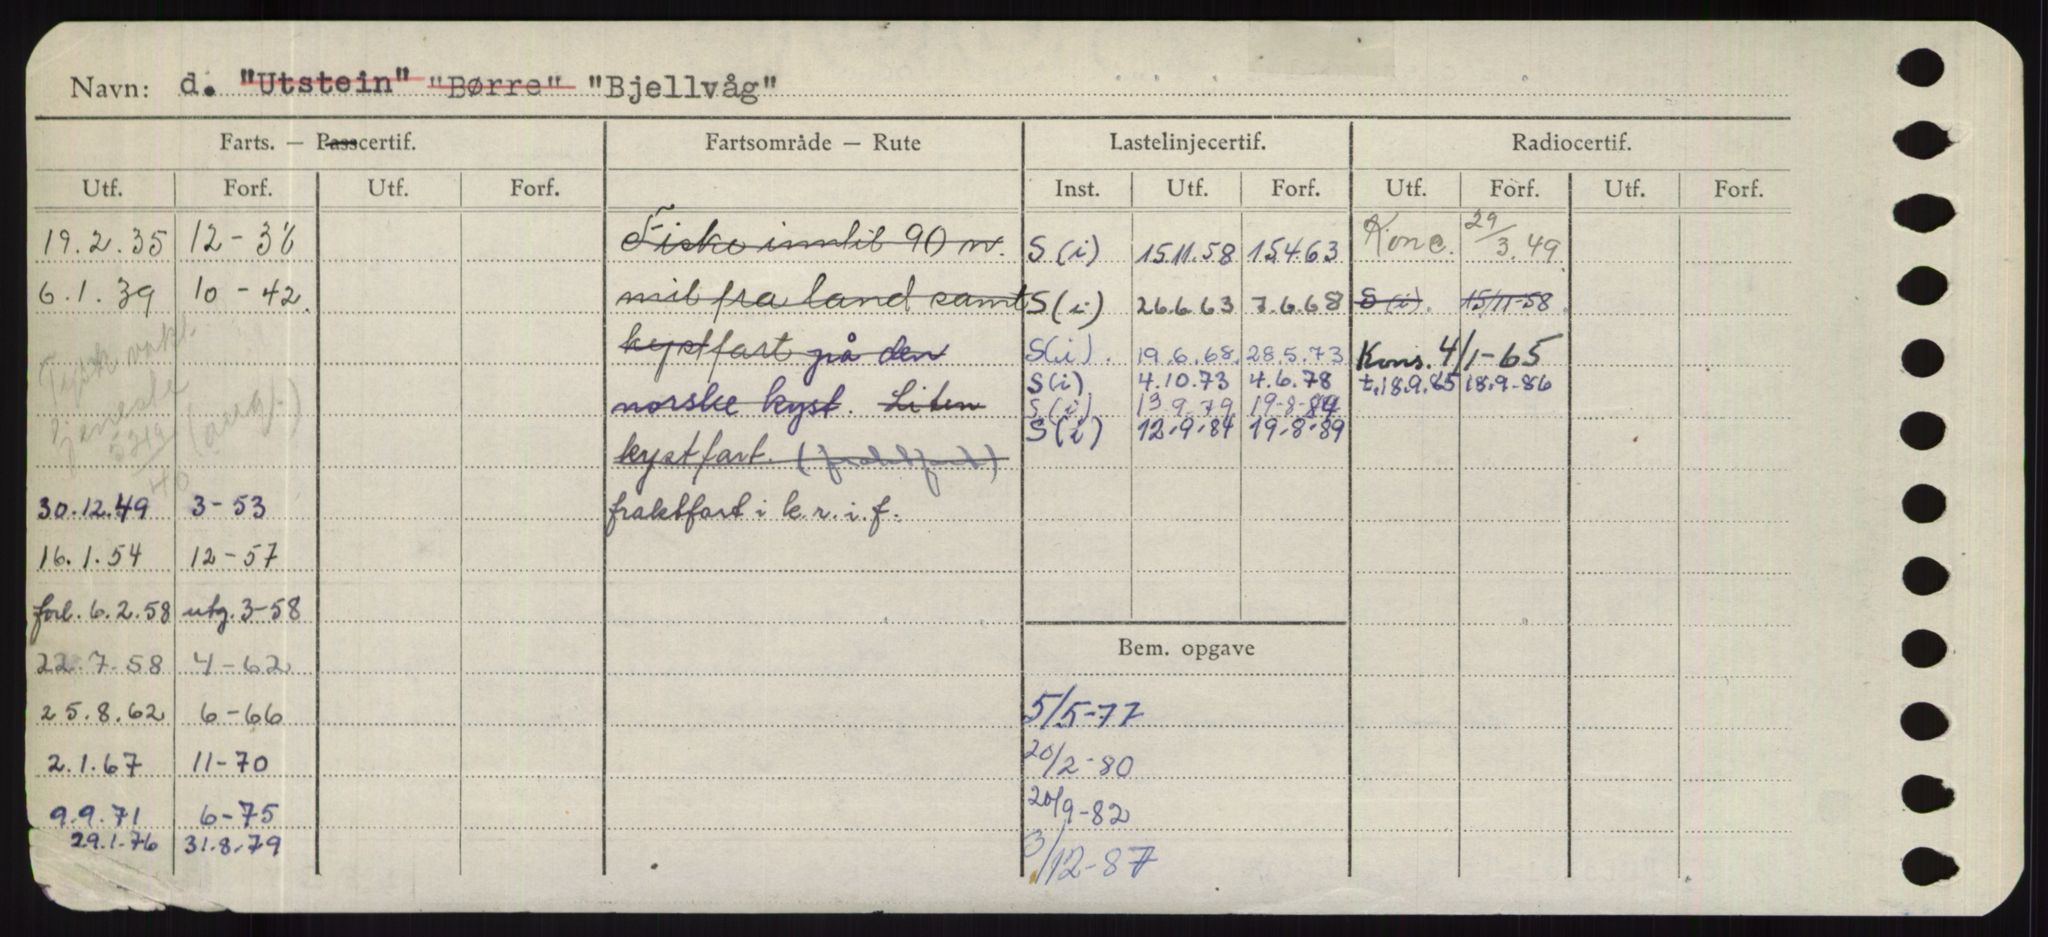 Navn: d. "Utstein" "Børre" "Bjellvåg"
Farts. — Passcertif. Fartsområde — Rute Lastelinjecertif. Radiocertif.
Utf. Forf. Utf. Forf. Inst. Utf. Forf. Utf. Forf. Utf. Forf.
19.2.35 12-38 Fiske inntil 90 n. S(i) 15.11.58 15.4.63 Konc. 29/3.49
6.1.39 10-42. mil fra land samt S(i) 26.6.63 7.6.68 S(i). 15/11-58.
Tysk vakt. kystfart på den S(i). 19.6.68. 28.5.73 Kons. 4/1-65
tjeneste norske kyst. Liten S(i) 4.10.73 4.6.78 t.18.9.85 18.9-86
(avg.) S(i) 13.9.79 19-8-84
S(i) 12.9.84 19.8.89
40 kystfart. (fraktfart)
30.12.49 3-53 fraktfart i k.r.i.f.
16.1.54 12-57
forl. 6.2.58 utg. 3-58
22.7.58 4-62 Bem. opgave
25.8.62 6-66 5/5-77
2.1.67 11-70 20/2-80
9.9.71 6-75 20/9-82
29.1.76 31.8.79 3/12-87